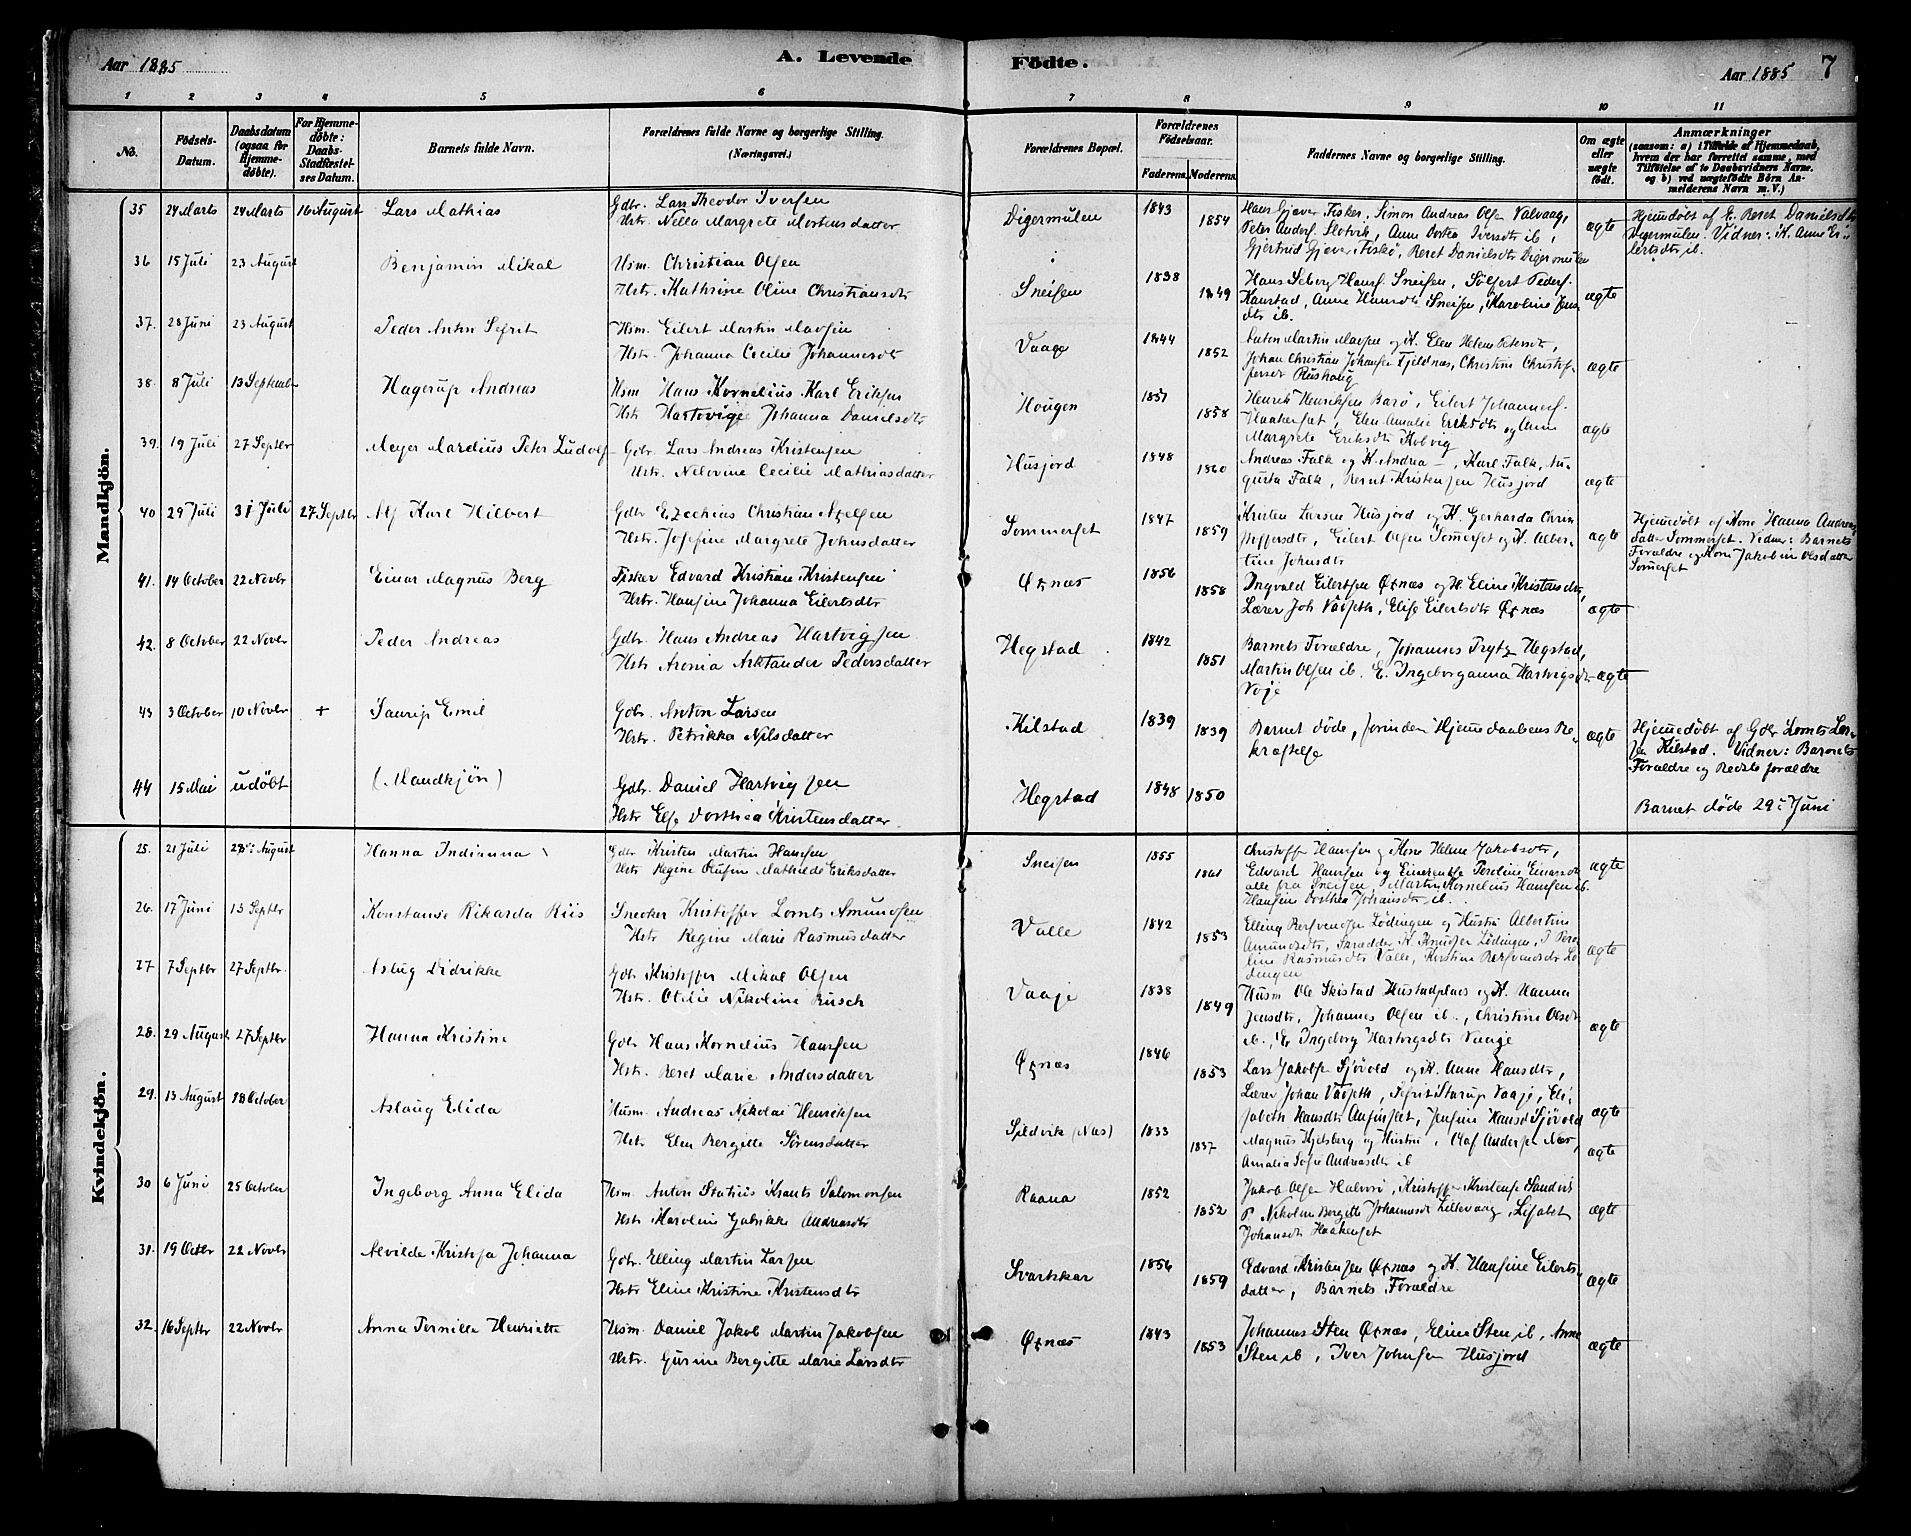 Aar 1885
A. Levende Födte.
Aar 1885 7
1 2 3 4 5 6 7 8 9 10 11
No.
Födsels-Datum.
Daabsdatum (ogsaa for Hjemme-döbte).
For Hjemme-döbte: Daabs-Stadfæstel-ses Datum.
Barnets fulde Navn.
Forældrenes fulde Navne og borgerlige Stilling.
(Næringsvei.)
Forældrenes Bopæl.
Forældrenes Födselsaar.
Faderens. Moderens.
Faddernes Navne og borgerlige Stilling.
Om ægte eller uægte födt.
Anmærkninger
(saasom: a) i Tilfælde af Hjemmedaab, hvem der har forrettet samme, med Tilföielse af to Daabsvidners Navne, og b) ved uægtefödte Börn An-melderens Navn m. V.)
Mandkjön.
35 24 Marts 24 Marts 16 August Lars Mathias Gdbr. Lars Theodor Iversen
Hstr. Nella Margrete Mortensdatter
Digermulen 1843 1854
Hans Gjæver Fisker, Simon Andreas Olsen Valvaag,
Peter Anders. Slotvik, Anne Dortea Iversdtr ib,
Gjertrud Gjæver Fiskø, Beret Danielsdtr Digermulen
ægte
Hjemdøbt af E. Beret Danielsdtr
Digermulen. Vidner: K. Anne Ei-
lertsdtr ib.
36 15 Juli 23 August Benjamin Mikal Hsm. Christian Olsen
Hstr. Kathrine Oline Christiansdtr
Sneisen 1838 1849
Hans Seberg Hans. Sneisen, Sölfert Peders.
Kanstad, Anne Hansdtr Sneisen, Karoline Jens
dtr ib.
ægte
37. 28 Juni 23 August Peder Anton Sefrit Hsm. Eilert Martin Madsen
Hstr. Johanna Cecilie Johannesdtr
Vaage 1844 1852
Anton Martin Madsen og K. Elen Helene Petersdtr,
Johan Christian Johansen Fjeldnæs, Christine Christof-
fersdtr Rishaug
ægte
38. 8 Juli 13 September Hagerup Andreas Hsm Hans Kornelius Karl Eriksen
Hstr Hartvige Johanna Danielsdtr
Hougen 1857 1858
Henrik Henriksen Barö, Eilert Johannes.
Haakerset, Elen Amalie Eriksdtr og Anne
Margrete Eriksdtr Kolvig
ægte
39. 19 Juli 27 Septbr Meyer Mardius Peter Ludolf Gdbr. Lars Andreas Kristensen
Hstr. Nelovine Cecilie Mathiasdatter
Husjord 1848 1860
Andreas Falk og K. Andrea —, Karl Falk, Au-
gusta Falk, Bernt Kristensen Husjord
ægte
40 29 Juli 31 Juli 27 Septbr Alf Karl Hilbert Gdbr Ezechias Christian Axelsen
Hstr. Josefine Margrete Johnsdatter
Sommerset 1847 1859
Kristen Larsen Husjord og K. Gerharda Chris
stoffersdtr, Eilert Olsen Somerset og K. Alber-
tine Johnsdtr
ægte
Hjemdøbt af Kone Hanna Andreas
datter Sommerset. Vidner: Barnets
Forældre og Kone Jakobine Olsdatter
Somerset
41. 14 October 22 Novbr Einar Magnus Berg Fisker Edvard Kristian Kristensen
Hstr. Hansine Johanna Eilertsdtr
Øxnæs 1856 1858
Ingvald Eilertsen Øxnæs og K. Eline Kristensdtr,
Lærer Joh Vaapeth, Elise Eilertsdtr Øxnæs
ægte
42. 8 October 22 Novbr Peder Andreas Gdbr. Hans Andreas Hartvigsen
Hstr Aronia Arktander Pedersdatter
Hegstad 1842 1851
Barnets Forældre, Johannes Prytz Hegstad,
Martin Olsen ib. E. Ingeborganna Hartvigsdtr
Voje
ægte
43 3 October 10 Novbr + Saurip Emil Gdbr. Anton Larsen
Hstr. Petrikka Nilsdatter
Kilstad 1839 1839
Barnet døde, forinden Hjemedaabens Be-
kræftelse
ægte
Hjemedøbt af Gdbr Lornts Lar-
sen Kilstad. Vidner: Barnets
Forældre og Bedsteforældre
44 15 Mai udöbt (Mandkjön) Gdbr. Daniel Hartvigsen
Hstr Else Dorthea Kristensdatter
Hegstad 1848 1850
Barnet døde 29. Juni
Kvindekjön.
25. 21 Juli 23 August Hanna Indianna Gdbr Kristen Martin Hansen
Hstr Regine Mathilde Eriksdatter
Sneisen 1855 1861
Christoffer Hansen og Kone Helene Jakobsdtr,
Edvard Hansen og Pernline Einarsdtr
alle fra Sneisen, Martin Kornelius Hansen ib.
Hansen Dorthea Johansdtr ib.
ægte
26. 17 Juni 13 Septbr Konstanse Rikarda Riis Snedker Kristoffer Lornts Amundsen
Hstr Regine Marie Rasmusdatter
Valle 1842 1853
Elling Bersvendsen Lödingen og Hustru Albertine
Amundsdtr, Skrædder K. Knudsen Lödingen, P. Pero-
line Rasmusdtr Valle, Kirstine Bersvendsdtr Lö-
dingen
ægte
27 7 Septbr 27 Septbr. Aslug Didrikke Gdbr Kristoffer Mikal Olsen
Hstr. Otilie Nikoline Busch
Vaaje 1838 1849
Husm Ole Skistad Hustadplads og K. Hanna
Jensdtr, Johannes Olsen ib., Christine Olsdtr
ib., E. Ingeborg Hartvigsdtr Vaaje
ægte
28. 29 August 27 Septbr Hanna Kristine Gdbr Hans Kornelius Hansen
Hstr. Beret Marie Andersdatter
Øxnæs 1846 1853
Lars Jakobs. Sjövold og K. Anne Hansdtr,
Lærer Johan Vaapeth, Sefrit Starup Vaaje, Eli-
sabeth Hansdtr Aufinslet, Jensine Hansdtr Sjövold
ægte
29. 13 August 18 October Aslaug Elida Husm. Andreas Nikolai Henriksen
Hstr. Elen Bergitte Sörensdatter
Sildvik (Næs) 1833 1837
Magnus Hjelsberg og Hustru, Olaf Anders. Næs,
Amalia Sofie Andreasdtr ib
ægte
30 6 Juni 25 October Ingeborg Anna Elida Hsm. Anton Statius Krants Salomonsen
Hstr Karoline Gabrikke Andreasdtr
Raana 1852 1852
Jakob Olsen Halvorö, Kristoffer Kristens. Sandvik
P. Nikoline Bergitte Johannesdtr Lillevaag, Lisabet
Johansdtr Haakenset
ægte
31. 19 Octbr 22 Novbr Alvilde Kristofa Johanna Gdbr. Elling Martin Larsen
Hstr Eline Kristine Kristensdtr
Svartskar 1856 1859
Edvard Kristensen Øxnæs og K. Hansine Eilerts
datter, Barnets Forældre
ægte
32. 16 Septbr 22 Novbr Anna Pernille Henriette Hsm. Daniel Jakob Martin Jakobsen
Hstr. Gurine Bergitte Marie Larsdtr
Øxnæs 1843 1853
Johannes Sten Øxnæs, Eline Sten ib, Anne
Sten ib, Iver Johnsen Husjord
ægte